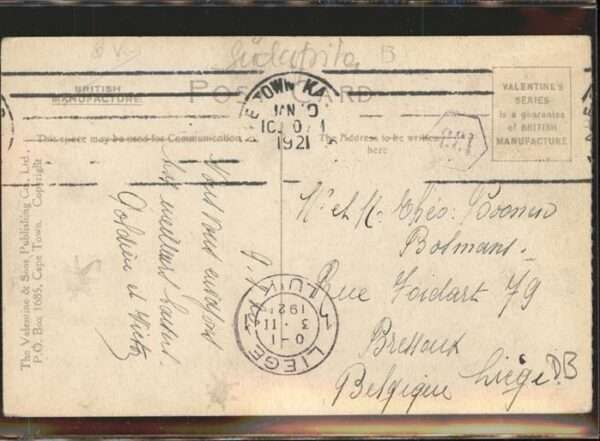 Südafrika B
BRITISH
MANUFACTURE
POST CARD
This space may be used for Communication.
The Address to be written
here
VALENTINE'S
SERIES
is a guarantee
of BRITISH
MANUFACTURE
E TOWN KA
JAN
1921
The Valentine & Sons Publishing Co., Ltd.,
P.O. Box 1685, Cape Town. Copyright
Nous vous envoyons
nos meilleurs baisers.
et Victor
Mr et Mme Théo:
Bolmans.
Rue Voidart 79
Bressoux
Belgique Liège
DB
LIEGE
LUIK
0-1
3 II
1921